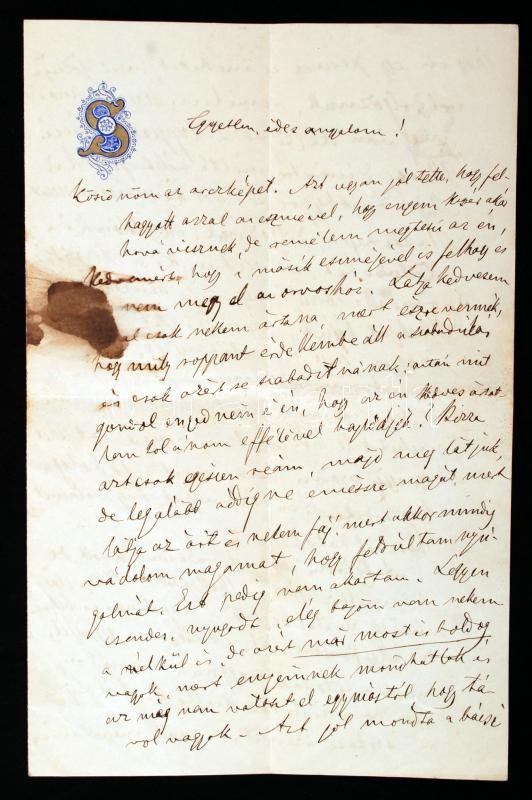 Egyetlen, édes angyalom!
Köszönöm az arczképet. Azt ugyan jól tette, hogy fel-
hagyott azzal az eszmével, hogy engem
hová visznek, de remélem megteszi az én,
kedvemért, hogy a másik eszméjével is felhagy és
nem megy el az orvoshoz. Látja kedvesem
csak nekem ártana, mert észrevennék,
hogy mily roppant érdekemben áll a szabadulás
és csak azért se szabadítnának; aztán mit
gondol enyedném é én, hogy az én kedves
hogy effélével bajlódjék? Bízza
azt csak egészen reám, majd meg látjuk,
de legalább addig ne eméssze magát, mert
látja az árt és nekem fáj, mert akkor mindig
vádolom magamat, hogy feldúltam nyu-
galmát. Ezt pedig nem akartam. Legyen
csendes, nyugodt, elég bajom van nekem
a nélkül is, de azért már most is boldog
vagyok, mert enyéimnek mondhatlak és
az még nem választ el egymástól hogy tá-
vol vagyok. Azt jól mondta a bácsi